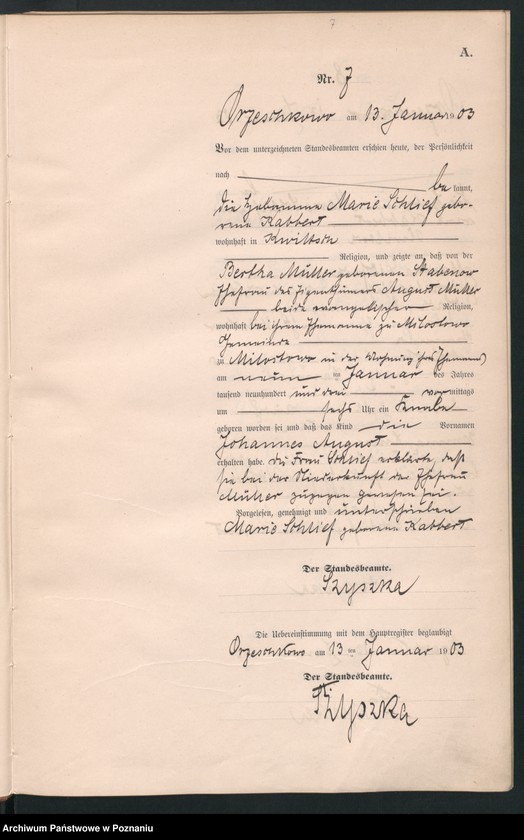 7
A.
Nr. 7
Orzeschkowo am 13. Januar 1903
Vor dem unterzeichneten Standesbeamten erschien heute, der Persönlichkeit
nach be kannt,
die Hebamme Marie Schlief gebo-
rene Kabbert
wohnhaft in Kwiltsch
Religion, und zeigte an, daß von der
Bertha Müller geborenen Stabenow
Ehefrau des Eigenthümers August Müller
beide evangelischer Religion,
wohnhaft bei ihrem Ehemanne zu Milostowo
Gemeinde
zu Milostowo in der Wohnung ihres Ehemannes
am neun ten Januar des Jahres
tausend neunhundert und drei vor mittags
um sechs Uhr ein Knabe
geboren worden sei und daß das Kind die Vornamen
Johannes August
erhalten habe. Die Frau Schlief erklärte, daß
sie bei der Niederkunft der Ehefrau
Müller zugegen gewesen sei.
Vorgelesen, genehmigt und unterschrieben
Marie Schlief geborene Kabbert
Der Standesbeamte.
Szyszka
Die Uebereinstimmung mit dem Hauptregister beglaubigt
Orzeschkowo am 13 ten Januar 1903
Der Standesbeamte.
Szyszka
Archiwum Państwowe w Poznaniu